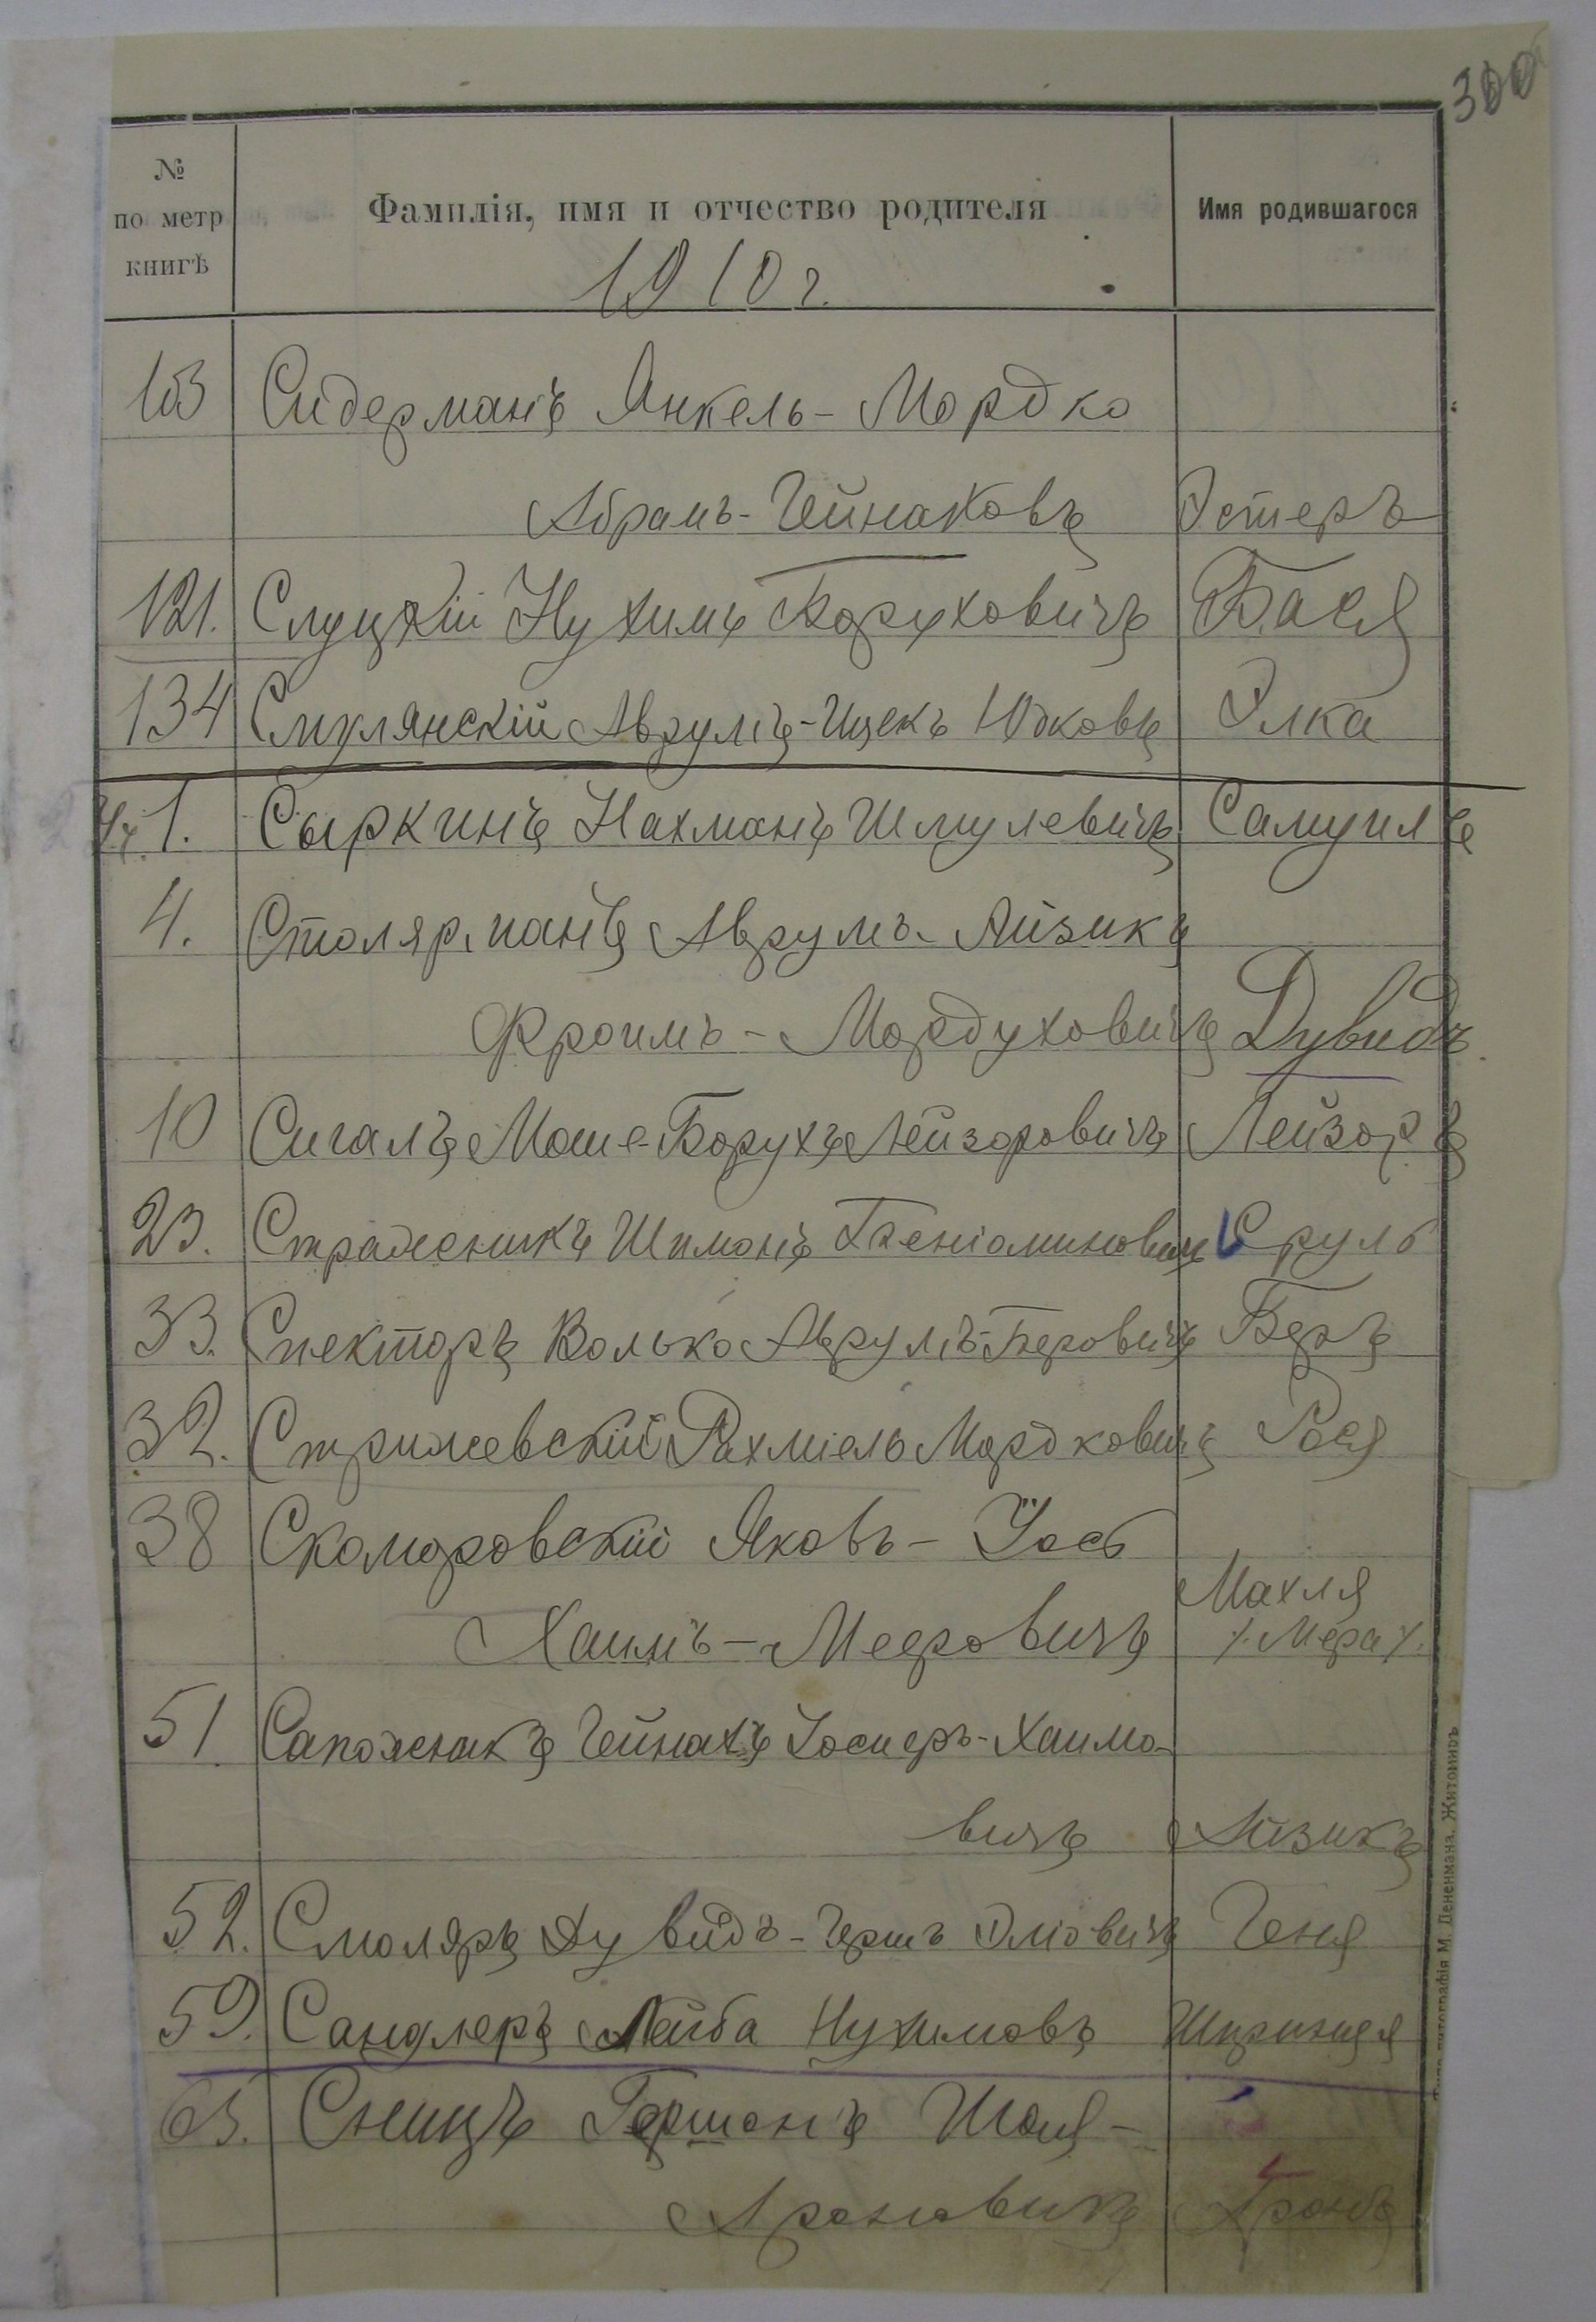 300
№
по метр
книгѣ
Фамилія, имя и отчество родителя
Имя родившагося
1910 г.
103 Сидерманъ Янкель-Мордко
Абрамъ-Гейнаковъ Эстеръ
121. Слуцкій Нухимъ Боруховичъ Бася
134 Смулянскій Аврумъ-Ицекъ Юдковъ Элка
1. Сыркинъ Нахманъ Шмулевичъ Самуилъ
4. Столярманъ Аврумъ-Айзикъ
Фроимъ-Мордуховичъ Дувидъ
10 Сигалъ Моше-Борухъ Лейзоровичъ Лейзоръ
23. Стражникъ Шимонъ Беніоминовичъ Сруль
33. Спекторъ Волько Аврумъ-Беровичъ Беръ
32. Стрижевскій Рахміель Мордковичъ Рося
38 Скоморовскій Яковъ-Іось
Хаимъ-Мееровичъ
Махля
/. Мера /.
51. Сапожнакъ Гейнахъ Іосиеръ-Хаимо-
вичъ Айзикъ
52. Смоляръ Дувидъ-Гершъ Эліовичъ Геня
59. Сандлеръ Лейба Нухимовъ
63. Сницъ Гершонъ Шая-
Ароновичъ Аронъ
литографія М. Дененмана. Житомиръ